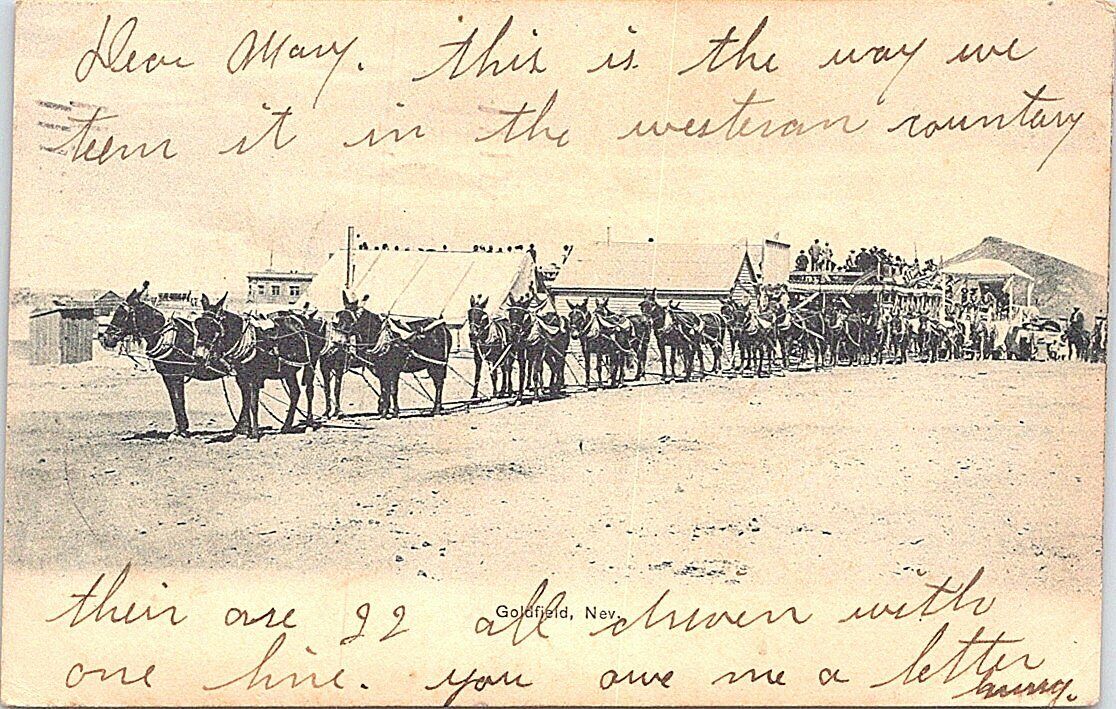 Dear Mary. this is the way we
teem it in the westeran countary
Goldfield, Nev.
their are 22 all driven with
one line. you owe me a letter
hurry.